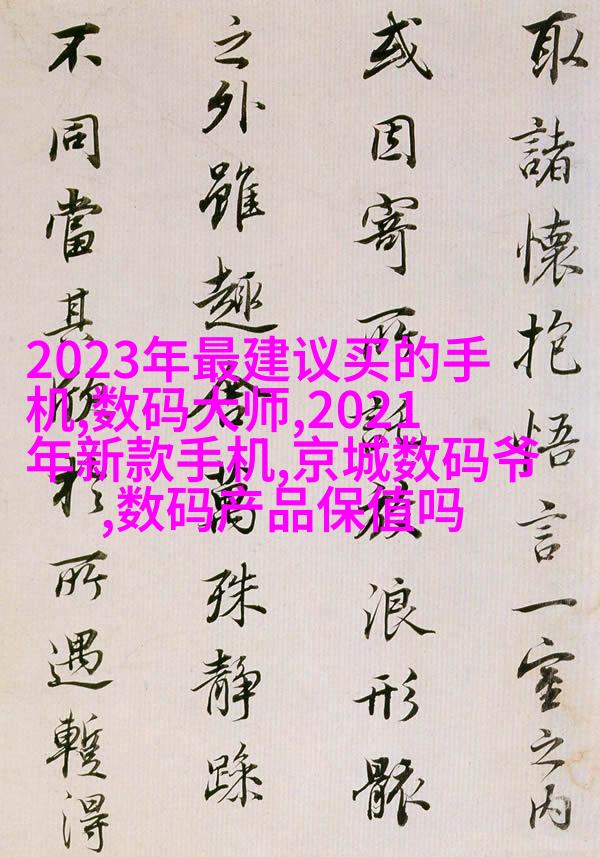 取諸懷抱悟言一室之内
或因寄所託放浪形骸
之外雖趣舍萬殊靜躁
不同當其欣於所遇暫得
2023年最建议买的手
机,数码大师,2021
年新款手机,京城数码爷
,数码产品保值吗